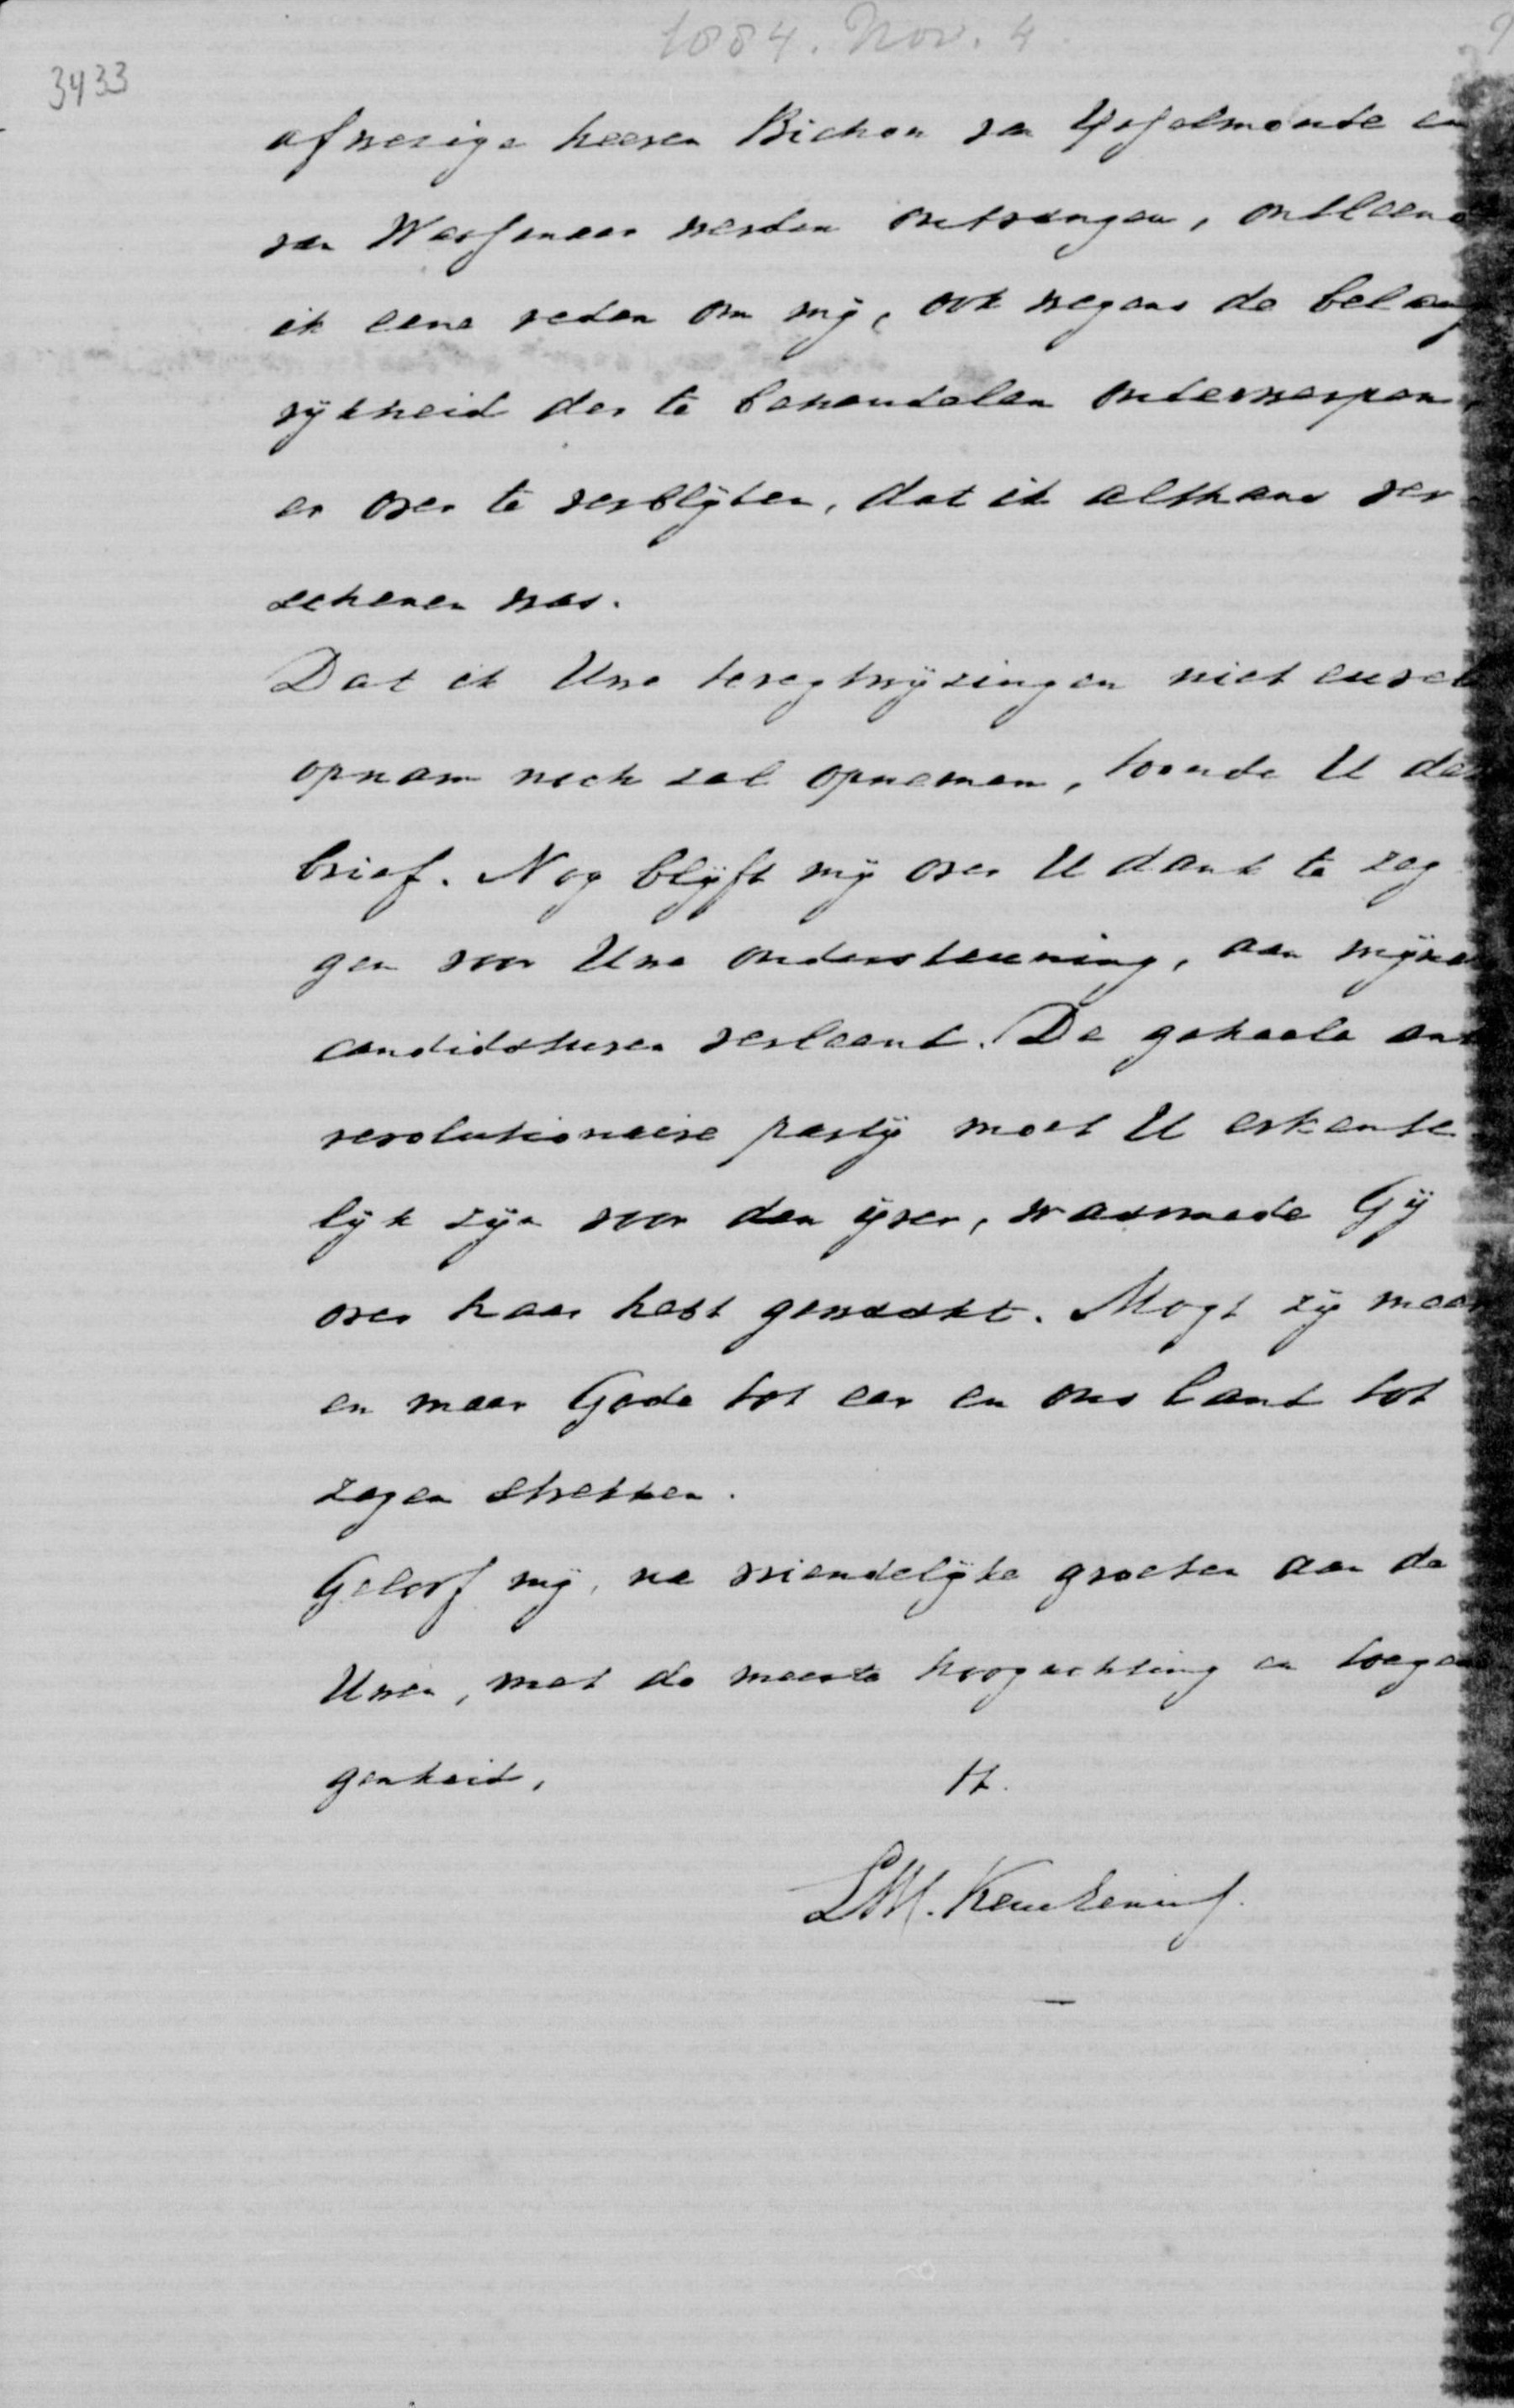 1884. Nov. 4
3433
afwezige heeren Bichon van IJsselmonde en
van Wassenaar werden ontvangen, ontleen
ik eene reden om mij, ook wegens de belang
rijkheid der te behandelen onderwerpen,
er over te verblijden, dat ik althans ver
schenen was.
Dat ik Uwe teregtwijzingen niet euvel
opnam noch zal opnemen, toonde U de
brief. Nog blijft mij over U dank te zeg
gen voor Uwe ondersteuning, aan mijne
candidaturen verleend. De geheele ant
revolutionaire partij moet U erkente
lijk zijn voor den ijver, waarmede Gij
over haar hebt gewaakt. Mogt zij meer
en meer Gode tot eer en ons land tot
zegen strekken.
Geloof mij, na vriendelijke groeten aan de
Uwen, met de meeste hoogachting en toege
genheid,
tt.
LW. Keuchenius.